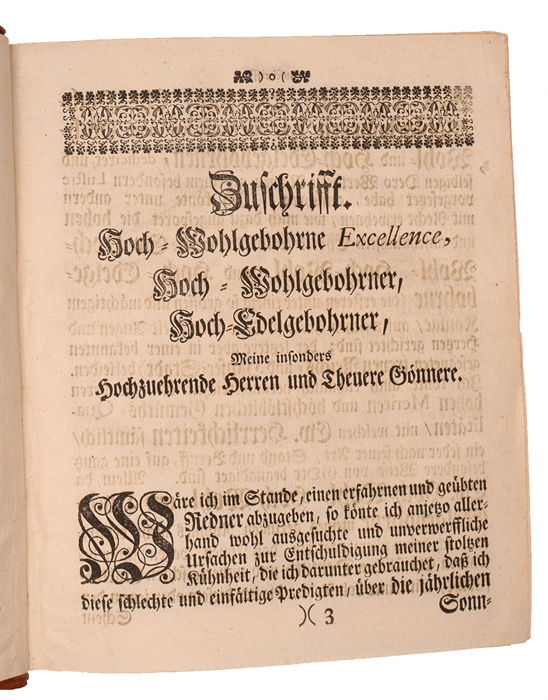 )o(
Zuschrifft.
Hoch-Wohlgebohrne Excellence,
Hoch-Wohlgebohrner,
Hoch-Edelgebohrner,
Meine insonders
Hochzuehrende Herren und Theuere Gönnere.
Wäre ich im Stande, einen erfahrnen und geübten
Redner abzugeben, so könte ich anjetzo aller-
hand wohl ausgesuchte und unverwerffliche
Ursachen zur Entschuldigung meiner stoltzen
Kühnheit, die ich darunter gebrauchet, daß ich
diese schlechte und einfältige Predigten, über die jährlichen
Sonn-
)( 3